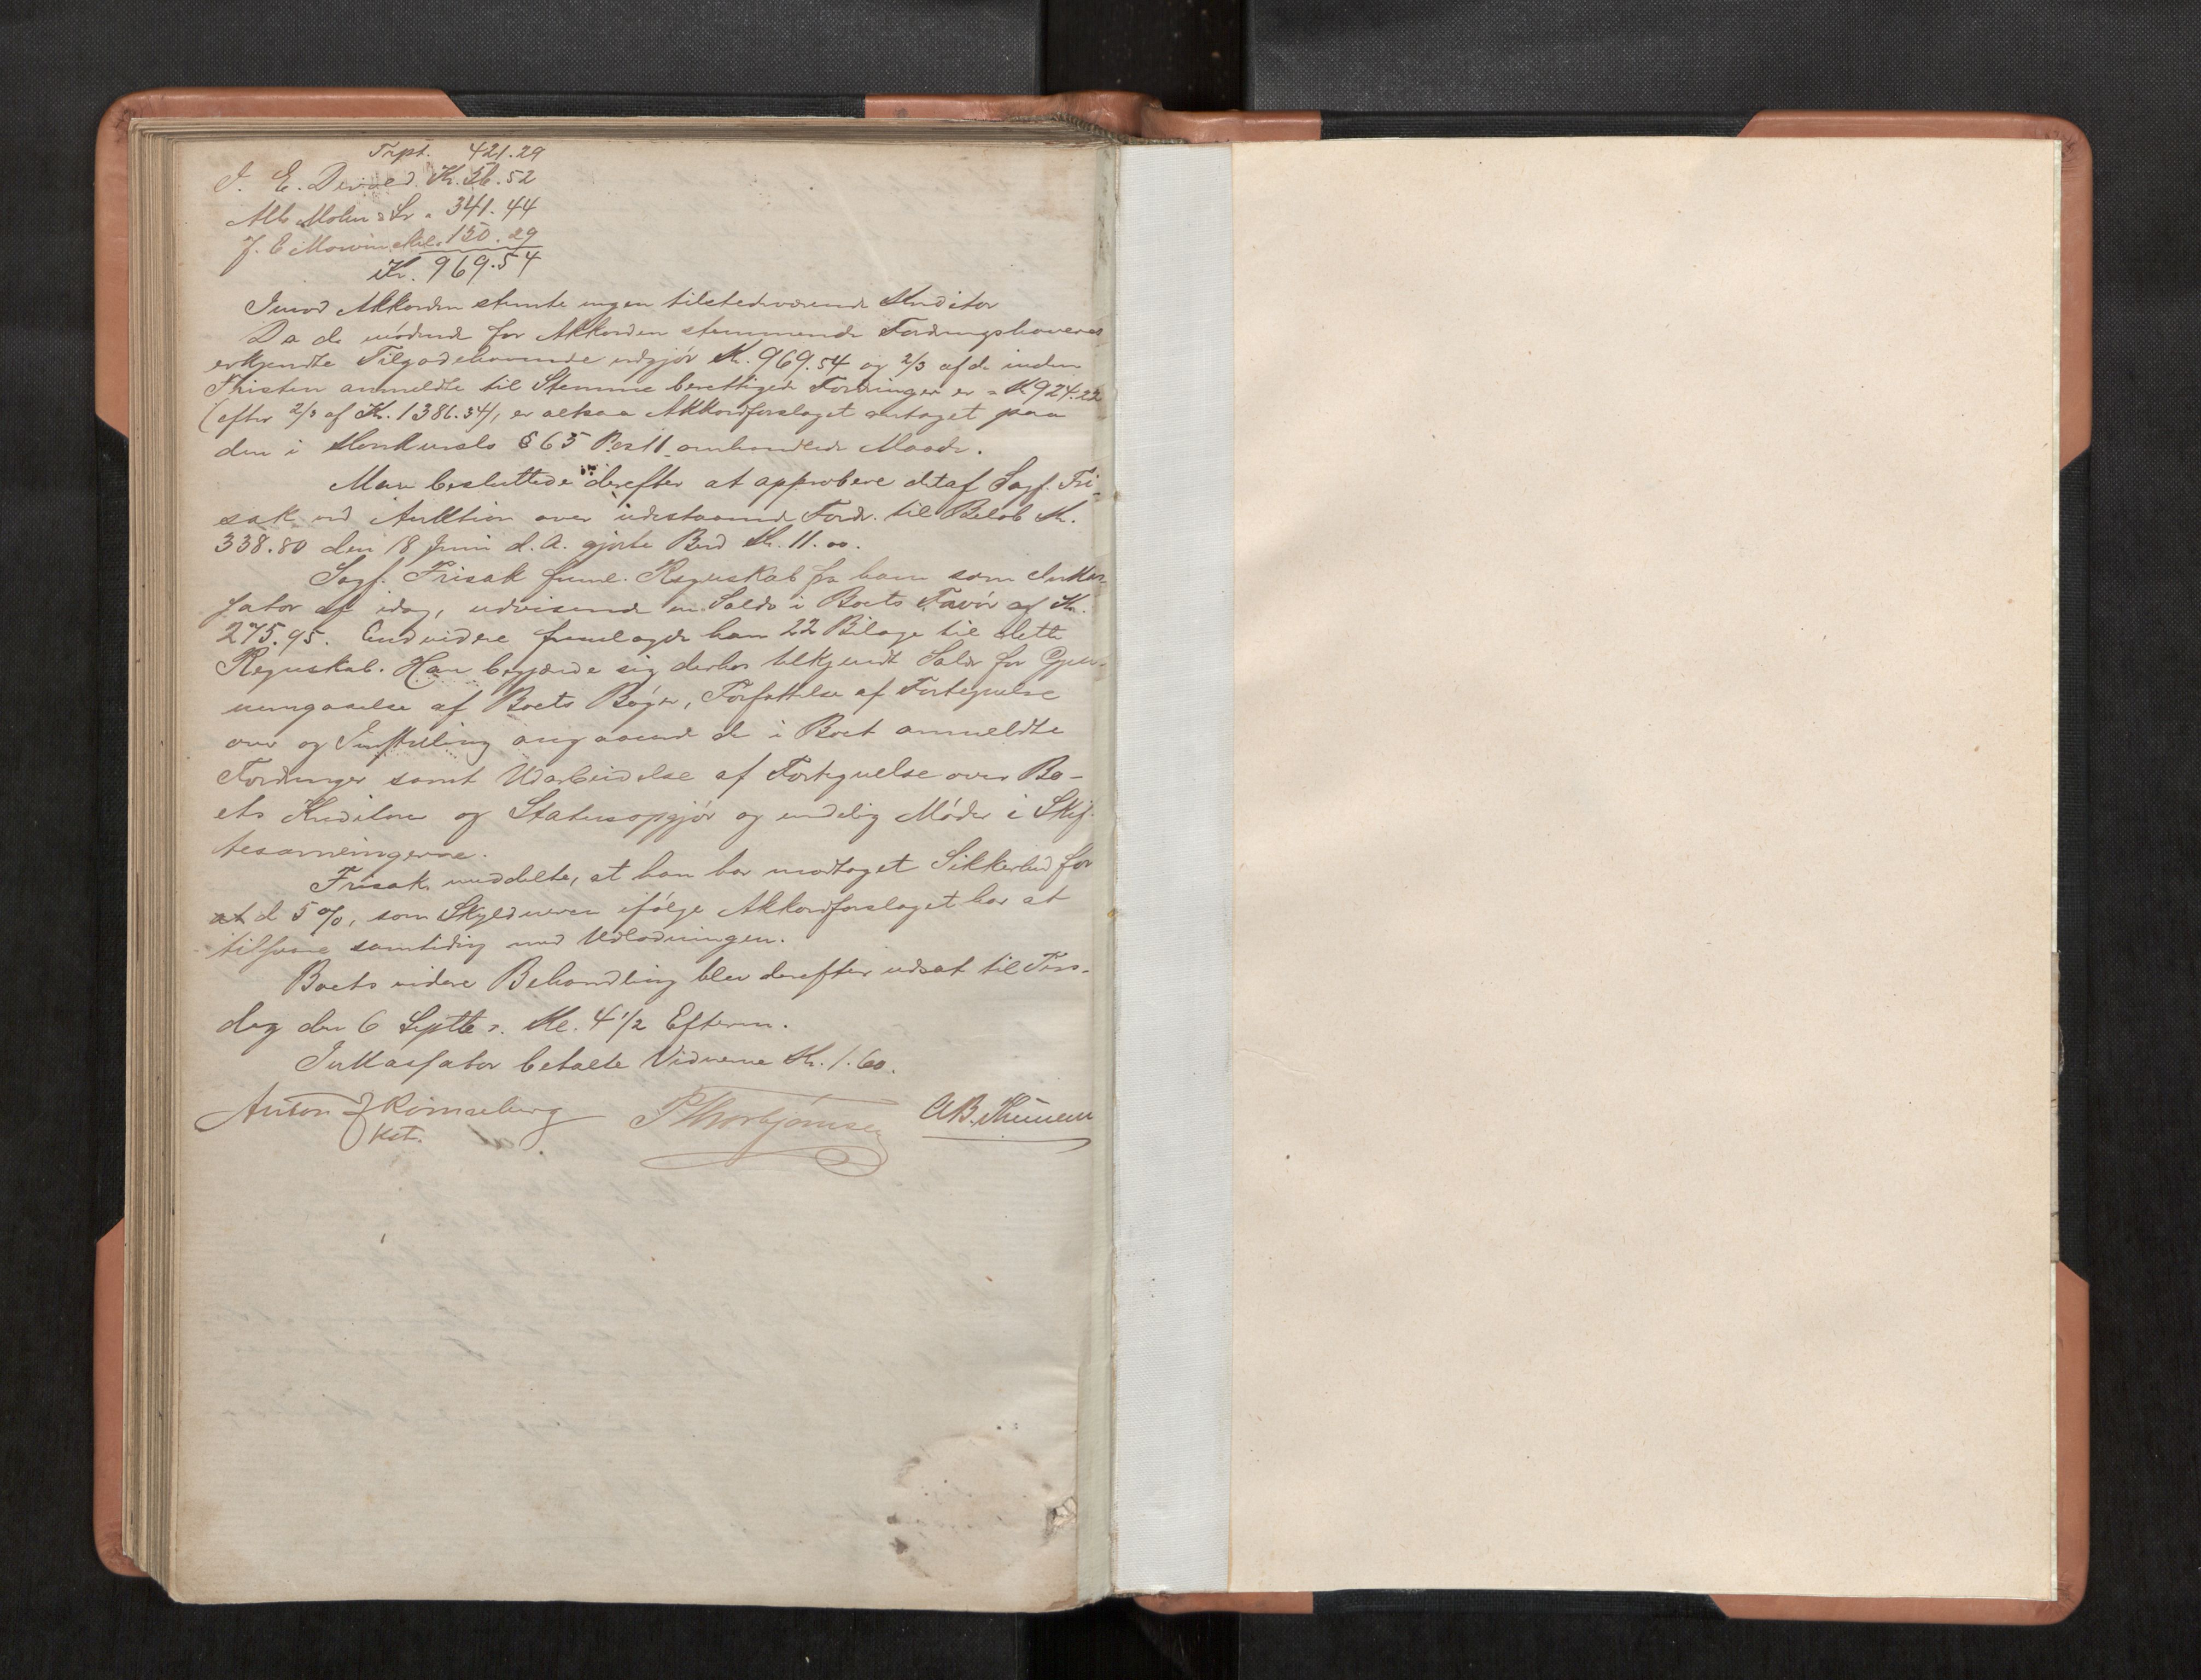 Trpt. 421.29
I. E. Devold Kr. 56.52
Alb. Mohn & Sr " 341.44
J. E. Mowinckel " 150.29
Kr. 969.54
Imod Akkorden stemte ingen tilstedeværende Kreditor
Da de mødende for Akkorden stemmende Fordringshaveres
erkjendte Tilgodehavende udgjør Kr. 969.54 og 2/3 af de inden
Fristen anmeldte til Stemme berettigede Fordringer er = Kr 924.22
(efter 2/3 af Kr. 1386.34), er altsaa Akkordforslaget antaget paa
den i Konkursls § 65 omhandlede Maade.
Man besluttede derefter at approbere det af Sagf. Fri-
sak ved Auktion over udestaaende Fordr. til Beløb Kr.
338.80 den 18 Juni d. A. gjorte Bud Kr. 11.00.
Sagf. Frisak freml. Regnskab fra ham som Inkas-
sator af idag, udvisende en Saldo i Boets Favør af Kr.
275.95. Endvidere fremlagde han 22 Bilage til dette
Regnskab. Han begjærede sig derhos tilkjendt Salær for Gjen-
nemgaaelse af Boets Bøger, Forfattelse af Fortegnelse
over og Indstilling angaaende de i Boet anmeldte
Fordringer samt Udarbeidelse af Fortegnelse over Bo-
ets Kreditorer og Statusopgjør og endelig Møder i Skif-
tesamlingerne.
Frisak meddelte, at han har modtaget Sikkerhed for
at de 5 %, som Skyldneren ifølge Akkordforslaget har at
tilsvare samtidig med Udlodningen.
Boets videre Behandling blev derefter udsat til Tirs-
dag den 6 Septbr. Kl. 4 1/2 Efterm.
Inkassator betalte Vidnerne Kr. 1.60.
Anton Rømseberg P Thorbjørnsen A.B.
kst.